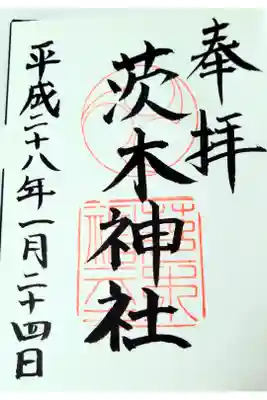 奉拝
茨木神社
平成二十八年一月二十四日